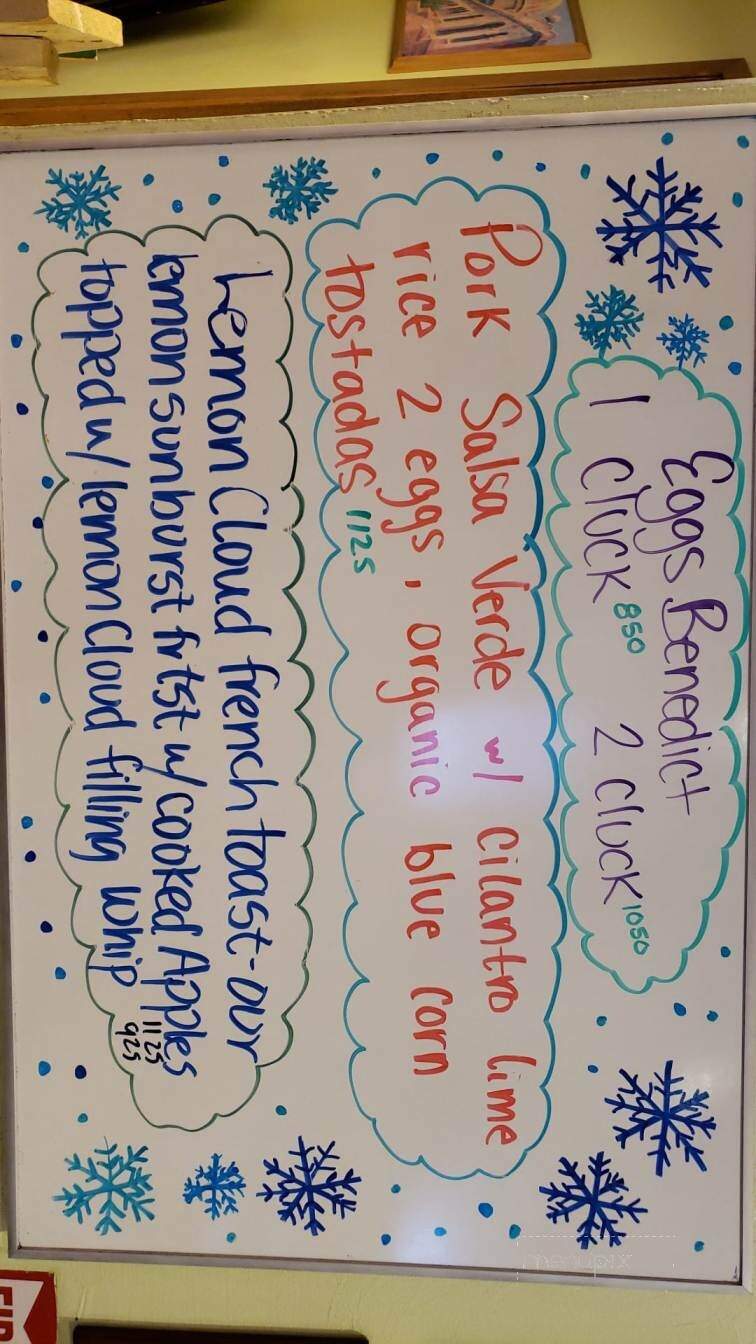 Eggs Benedict
1 cluck 850 2 cluck 1050
Pork Salsa Verde w/ cilantro lime
rice 2 eggs, organic blue corn
tostadas 1125
Lemon Cloud french toast - our
lemon sunburst frtst w/ cooked Apples
topped w/ lemon Cloud filling whip 1125
925
menupix